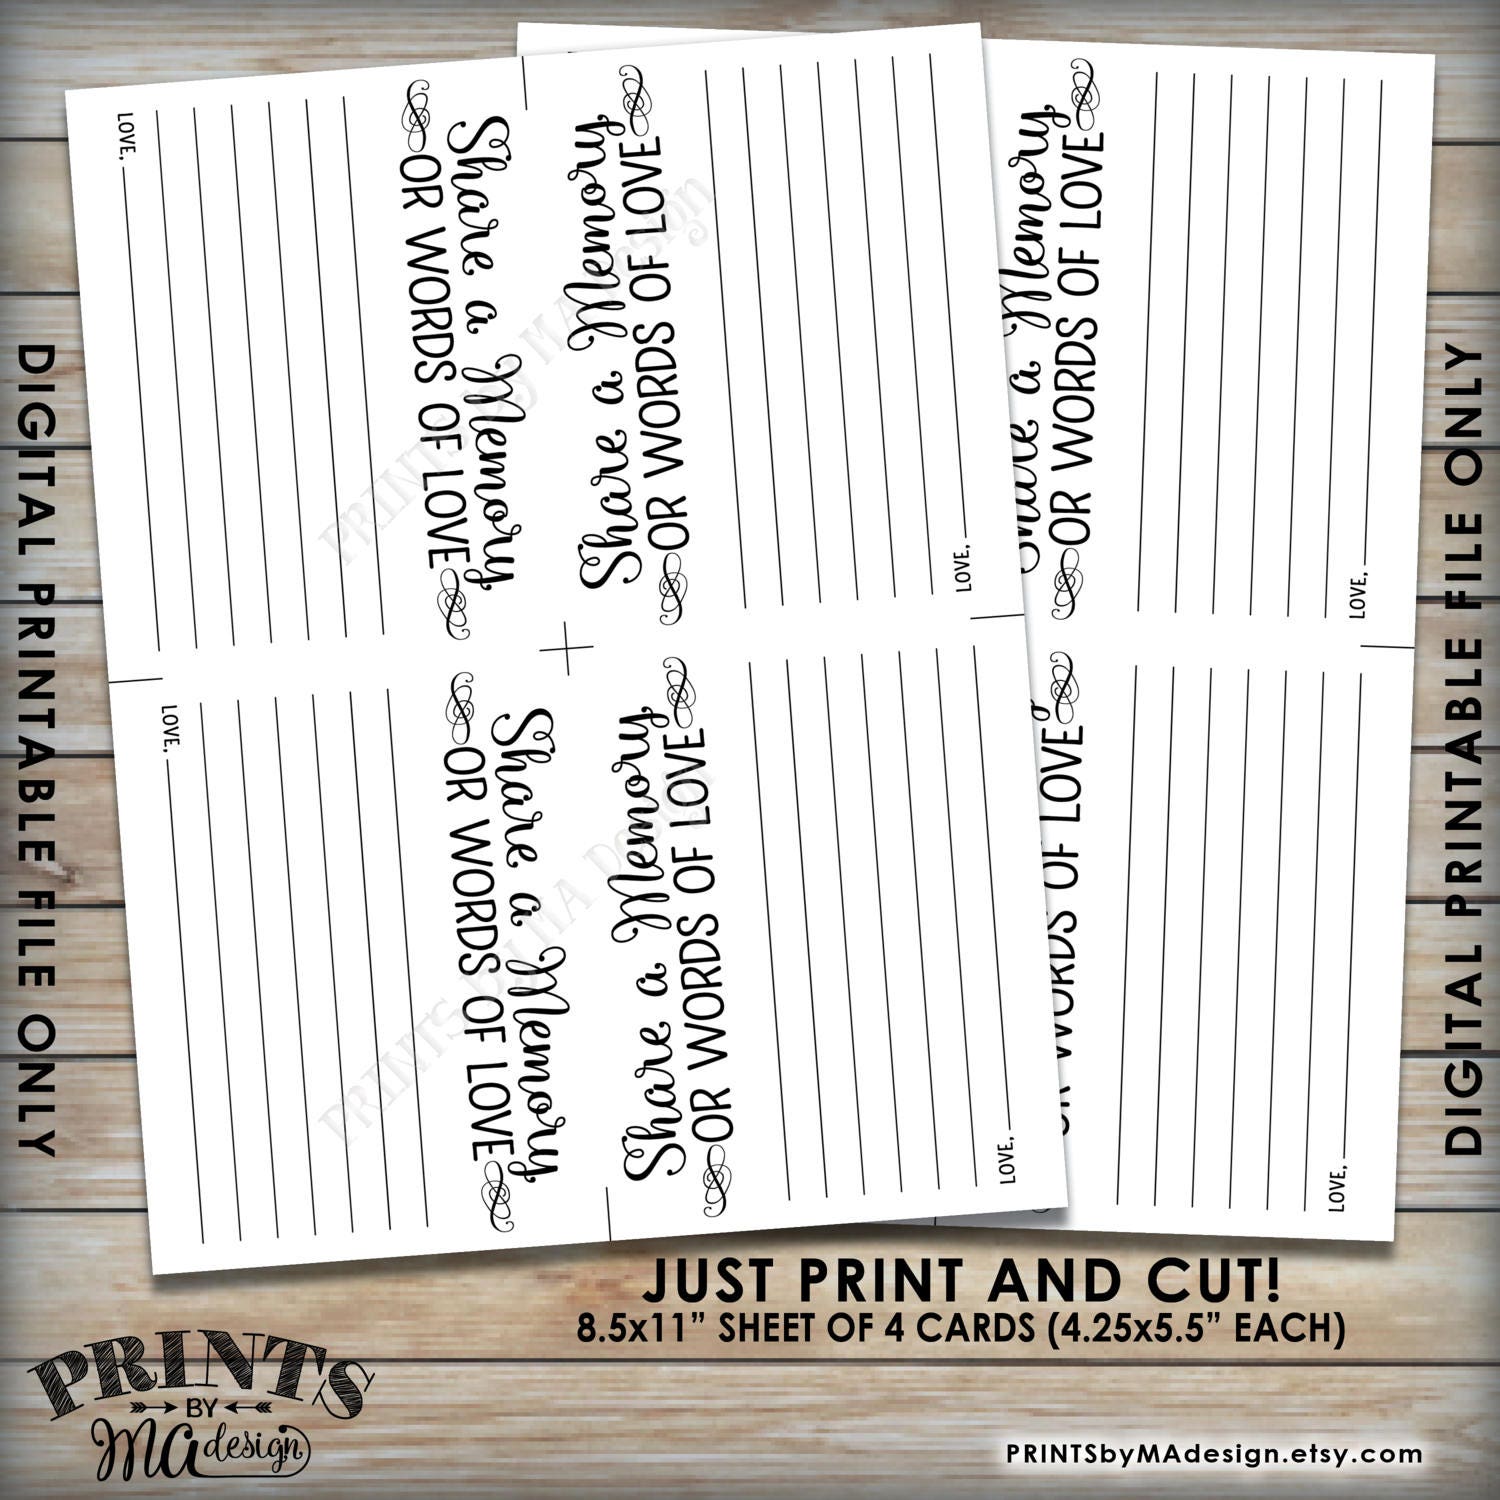 LOVE,
Share a Memory
OR WORDS OF LOVE
Share a Memory
OR WORDS OF LOVE
LOVE,
Share a Memory
OR WORDS OF LOVE
LOVE,
LOVE,
Share a Memory
OR WORDS OF LOVE
Share a Memory
OR WORDS OF LOVE
LOVE,
OR WORDS OF LOVE
LOVE,
PRINTS by MA Design
PRINTS by MA Design
DIGITAL PRINTABLE FILE ONLY
DIGITAL PRINTABLE FILE ONLY
JUST PRINT AND CUT!
8.5x11” SHEET OF 4 CARDS (4.25x5.5” EACH)
PRINTS
BY
MAdesign
PRINTSbyMAdesign.etsy.com